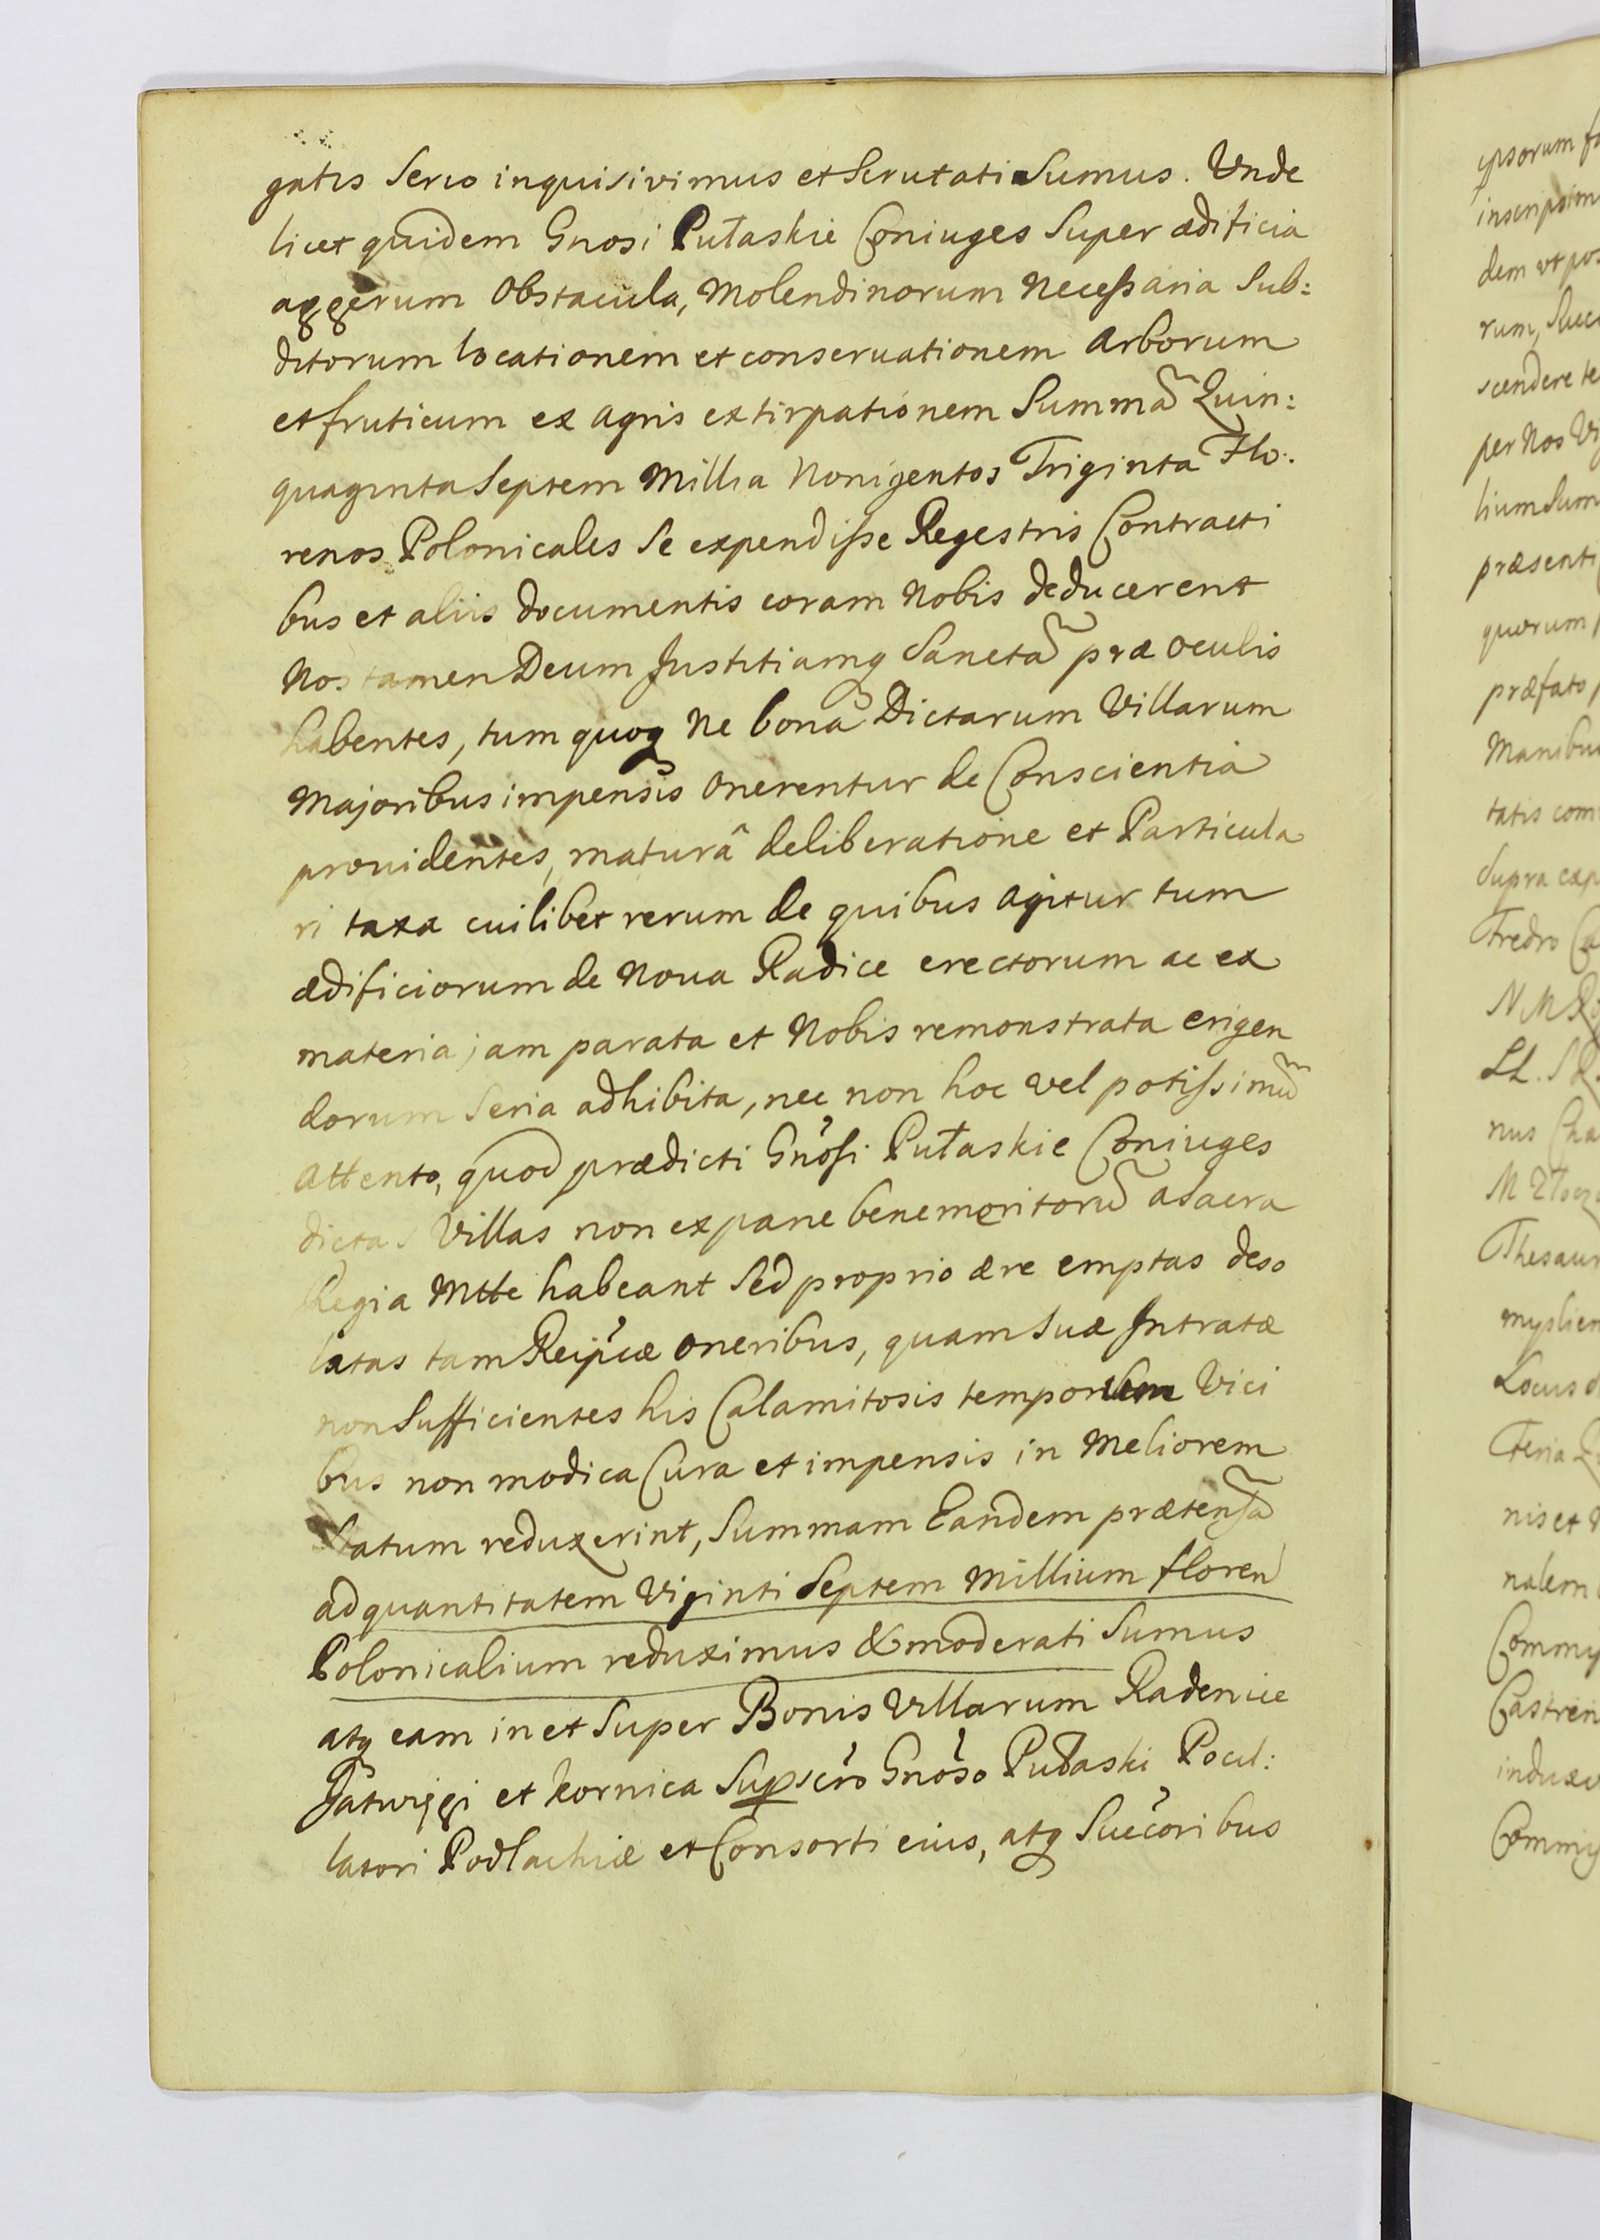 gatis Serio inquisivimus et Scrutati Sumus. Vnde
licet quidem Gnosi Pułaskie Coniuges Super ædificia
aggerum Obstacula, Molendinorum Necessaria Sub:
ditorum locationem et conseruationem Arborum
et fruticum ex agris extirpationem Summã Quin:
quaginta Septem Millia Nonigentos Triginta Flo:
renos Polonicales Se expendisse Regestris Contracti
bus et aliis documentis coram Nobis deducerent
Nos tamen Deum Justitiamq Sanctã præ oculis
habentes, tum quoq Ne bona Dictarum Villarum
Majoribus impensis Onerentur de Conscientia
prouidentes, maturâ deliberatione et Particula
ri taxa cuilibet rerum de quibus agitur tum
ædificiorum de Noua Radice erectorum ac ex
materia jam parata et Nobis remonstrata erigen
dorum Seria adhibita, nec non hoc vel potissimũ
Attento, quod prædicti Gnosi Pułaskie Coniuges
dictas Villas non ex pane benemeritorũ a Sacra
Regia Mtte habeant Sed proprio ære emptas deso
latas tam Reipcæ Oneribus, quam Suæ Intratæ
non Sufficientes his Calamitosis temporum Vici
bus non modica Cura et impensis in Meliorem
Statum reduxerint, Summam Eandem prætensã
ad quantitatem Viginti Septem Millium floren
Polonicalium reduximus & moderati Sumus
atq eam in et Super Bonis Villarum Radenice
Jatwięgi et hornica Supscro Gnoso Pułaski Pocil:
latori Podlachiæ et Consorti eius, atq Succoribus
ipsorum
dem vt
rum,
scendere
per Nos
lium Sum
præsenti
quorum
præfato
Manibu
tatis com
Supra exp
Fredro
nus
Thesaur
Locus
Feria
nis et
nalem
Castren